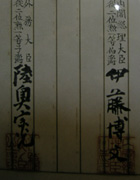 内閣總理大臣
從二位勲一等伯爵
伊藤博文
外務大臣
從二位勲一等子爵
陸奥宗光